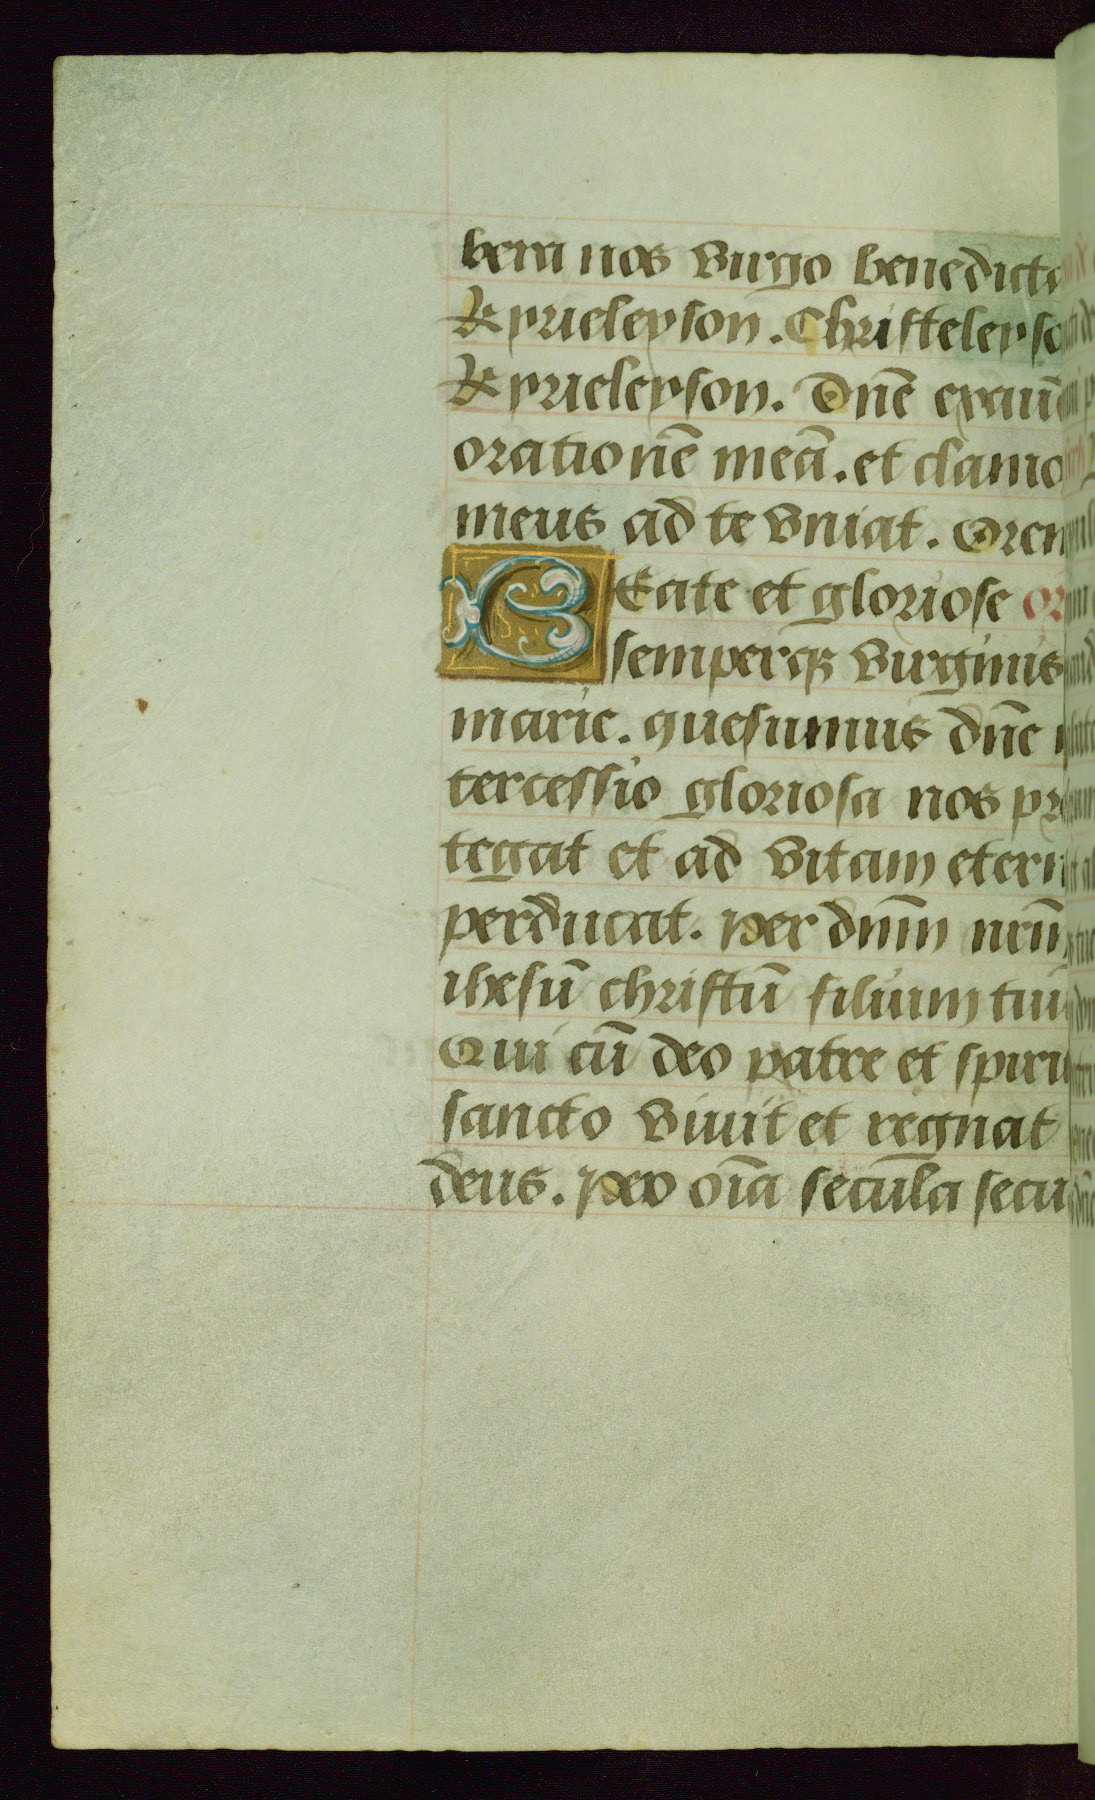 bem nos virgo benedicta
Kyrieleyson. Christeleyso
Kyrieleyson. Dñe exaud
orationē meā. et clamo
meus ad te vniat. Orem
BEate et gloriose or
semperqꝫ virginis
marie. quesumus dñe
tercessio gloriosa nos pro
tegat et ad vitam etern
perducat. Per dnm̄ nrū
ihesū christū filium tuū
Qui cū deo patre et spiri
sancto viuit et regnat
deus. Per oīa secula secu